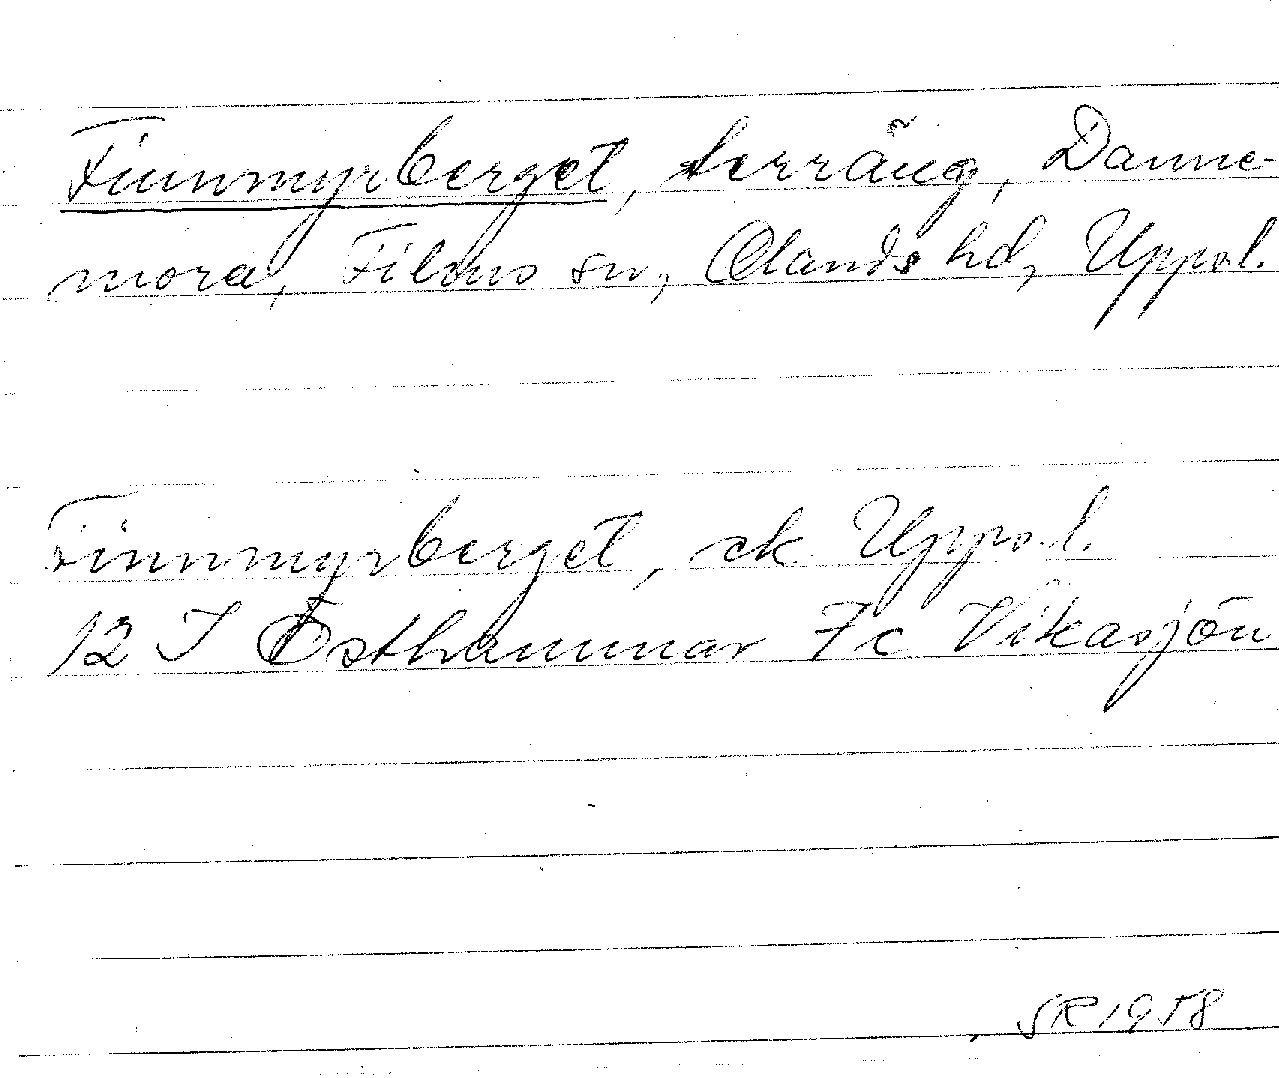 Finnmyrberget, terräng, Danne-
mora, Films sn, Olands hd, Uppl.
Finnmyrberget, ek Uppl.
12 I Östhammar 7c Vikasjön
SR 1958